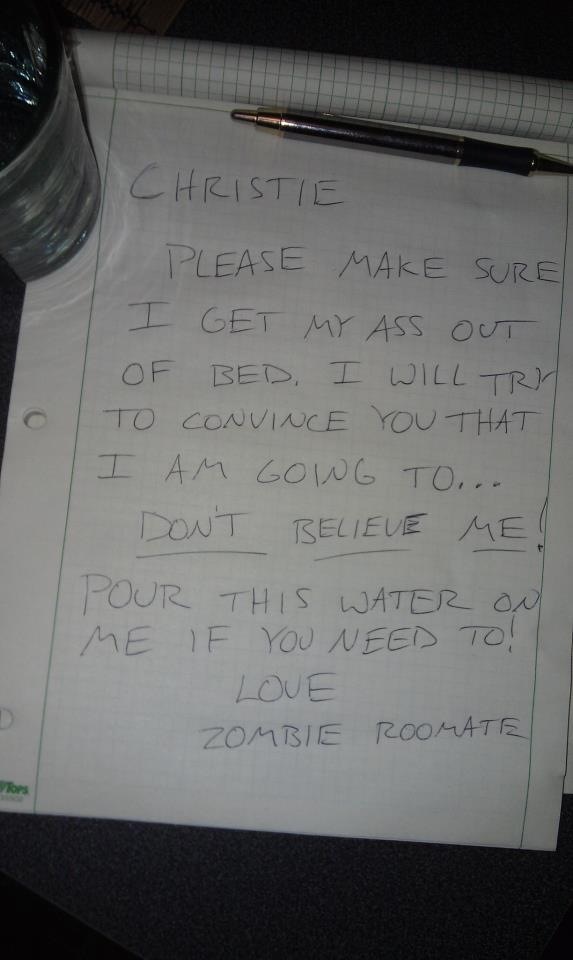 CHRISTIE
PLEASE MAKE SURE
I GET MY ASS OUT
OF BED. I WILL TRY
TO CONVINCE YOU THAT
I AM GOING TO...
DON'T BELIEVE ME!
POUR THIS WATER ON
ME IF YOU NEED TO!
LOVE
ZOMBIE ROOMATE
TOPS